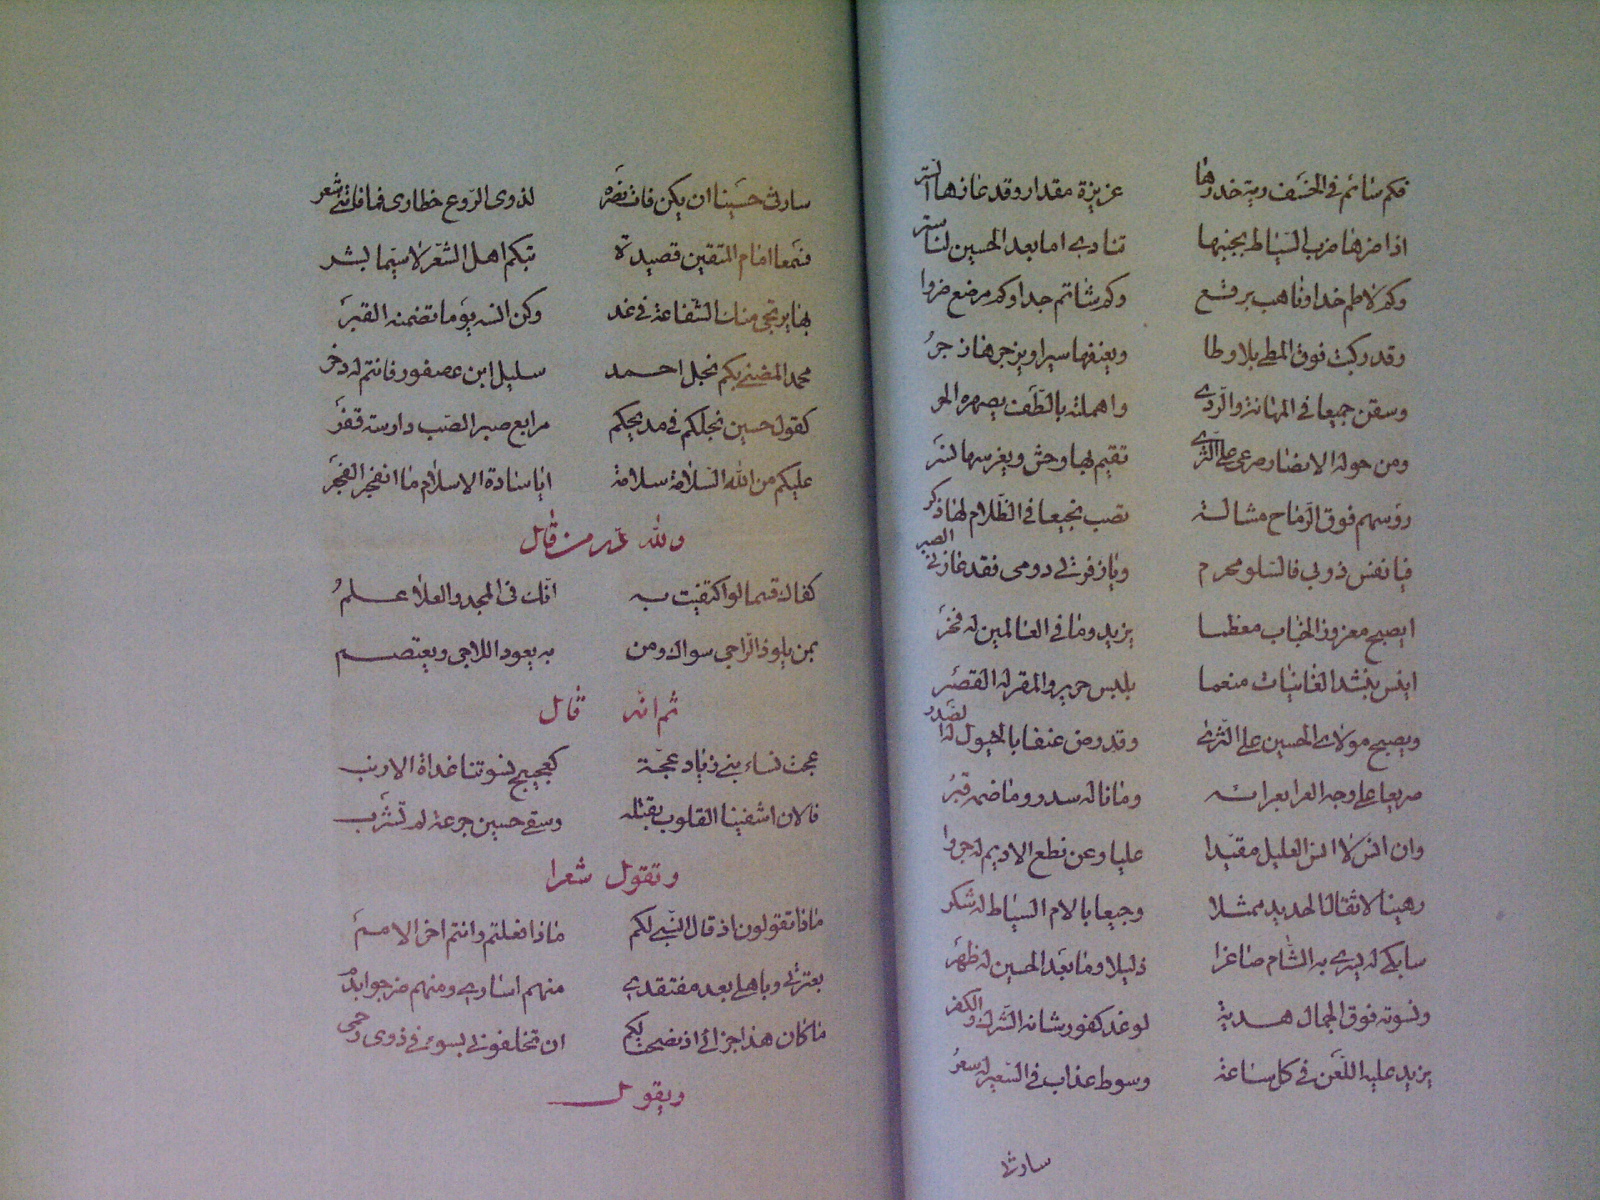 فكم شاتم في الخسف ربة خدرها عزيزة مقدار وقد عازها الستر
اذا ضرها ضرب السياط بجنبها تنادي اما بعد الحسين لنا ستر
وكم لاطم خدا وناهب برقع وكم شاتم جدا وكم مرضع ضروا
وقد ركبت فوق المطي بلا وطا ويعنفها سيرا ويزجرها زجر
وسقن جميعا في المهانة والردى واهملنه بالطف يصهره الحر
ومن حوله الانصار صرعى على الثرى تقيم بها وحش ويغرسها نسر
رؤسهم فوق الرماح مشالة نصب نجيعا في الظلام لها ذكر
فيا نفس ذوبي فالسلو محرم ويا زفرتي دومى فقد عازني الصبر
ايصبح معزوز الجناب معظما يزيد وما في العالمين له فخر
بنشد الغانيات منعما بلبس حرير والمقر له القصر
ويصبح مولاي الحسين على الثرى وقد رض عنفا بالخيول له الصدر
صريعا على وجه العرا بعرائه وما ناله سدر وما ضمه قبر
وان انس لا انس العليل مقيدا عليا وعن نطع الاديم له جروا
رهينا لاثقال الحديد ممثلا وجيعا بالام السياط له شكر
سابكي له يسرى به الشام صاغرا ذليلا وما بعد الحسين له ظهر
ونسوته فوق الجمال هدية لوغد كفور شانه الشرك والكفر
يزيد عليه اللعن في كل ساعة وسوط عذاب في السعير له سعر
سارثي
سارثى حسينا ان يكن فات نصره لذوى الروع خطارى فما فاتني شعر
فسمعا امام المتقين قصيدة تبكم اهل الشعر لا سيما بشر
بها يرتجى منك الشفاعة في غد وكن انسه يوما تضمنه القبر
محمد المضنى بكم نجل احمد سليل ابن عصفور فانتم له ذخر
كقول حسين نجلكم في مديحكم مرابع صبر الصب دارسة قفر
عليكم من الله السلام سلامة ايا سادة الاسلام ما انفجر الفجر
ولله در من قال
كفاك قسما لو اكتفيت به انك فى المجد والعلا علم
بمن يلوذ الراجى سواك ومن به يعود اللاجى ويعتصم
ثم انه قال
عجت نساء بني زياد عجة كعجيج نسوتنا غداة الارنب
فالان اشفينا القلوب بقتله وسقى حسين جرعة لم تشرب
وتقول شعرا
ماذا تقولون اذ قال النبي لكم ماذا فعلتم وانتم اخر الامم
بعترتي وباهلي بعد مفتقدي منهم اسارى ومنهم ضرجوا بدم
ما كان هذا جزائي اذ نصحت لكم ان تخلفوني بسوء في ذوى رحمى
ويقول